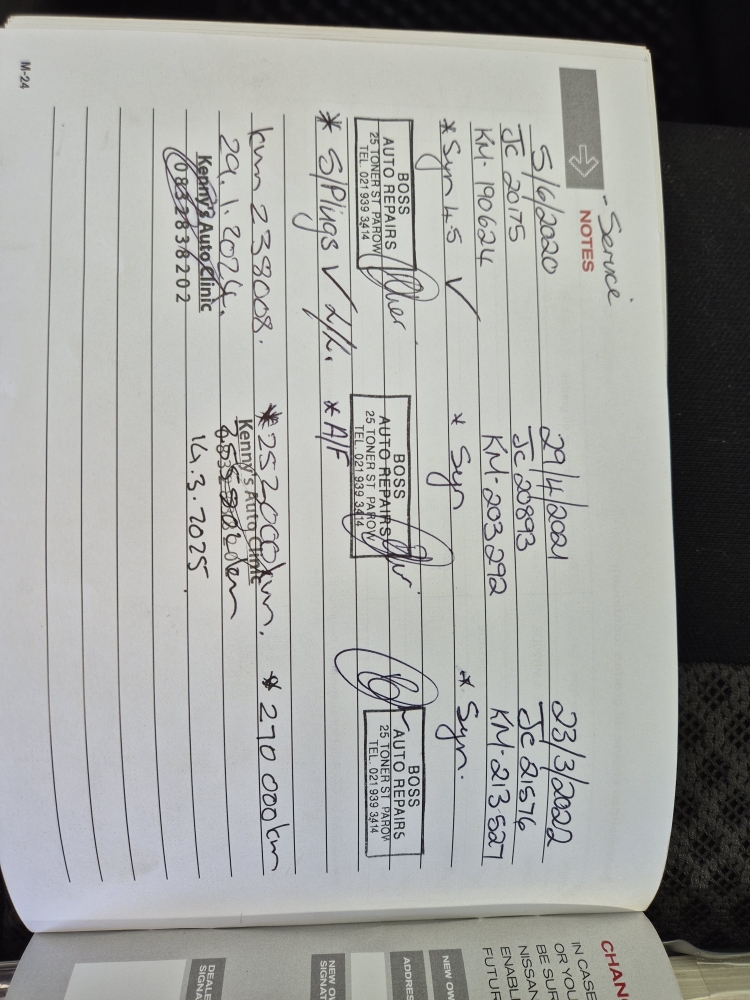 - Service
NOTES
5/6/2020
Jc 20175
KM- 190624
* Syn 4.5 ✓
BOSS
AUTO REPAIRS
25 TONER ST PAROW
TEL. 021 939 3414
* S/Plugs ✓ 2/2.
29/4/2021
Jc 20893
KM- 203 292
* Syn
BOSS
AUTO REPAIRS
25 TONER ST PAROW
TEL. 021 939 3414
* A/F
23/3/2022
Jc 21576
KM- 213 527
* Syn.
BOSS
AUTO REPAIRS
25 TONER ST PAROW
TEL. 021 939 3414
km 238008.
29.1.2024.
Kenny's Auto Clinic
0832838202
* 252000km.
Kenny's Auto Clinic
14.3.2025
* 270 000km
M-24
CHAN
IN CASE
OR YOU
BE SUR
NISSAN
ENABL
FUTUR
NEW OW
ADDRES
NEW OW
SIGNAT
DEALE
SIGNA